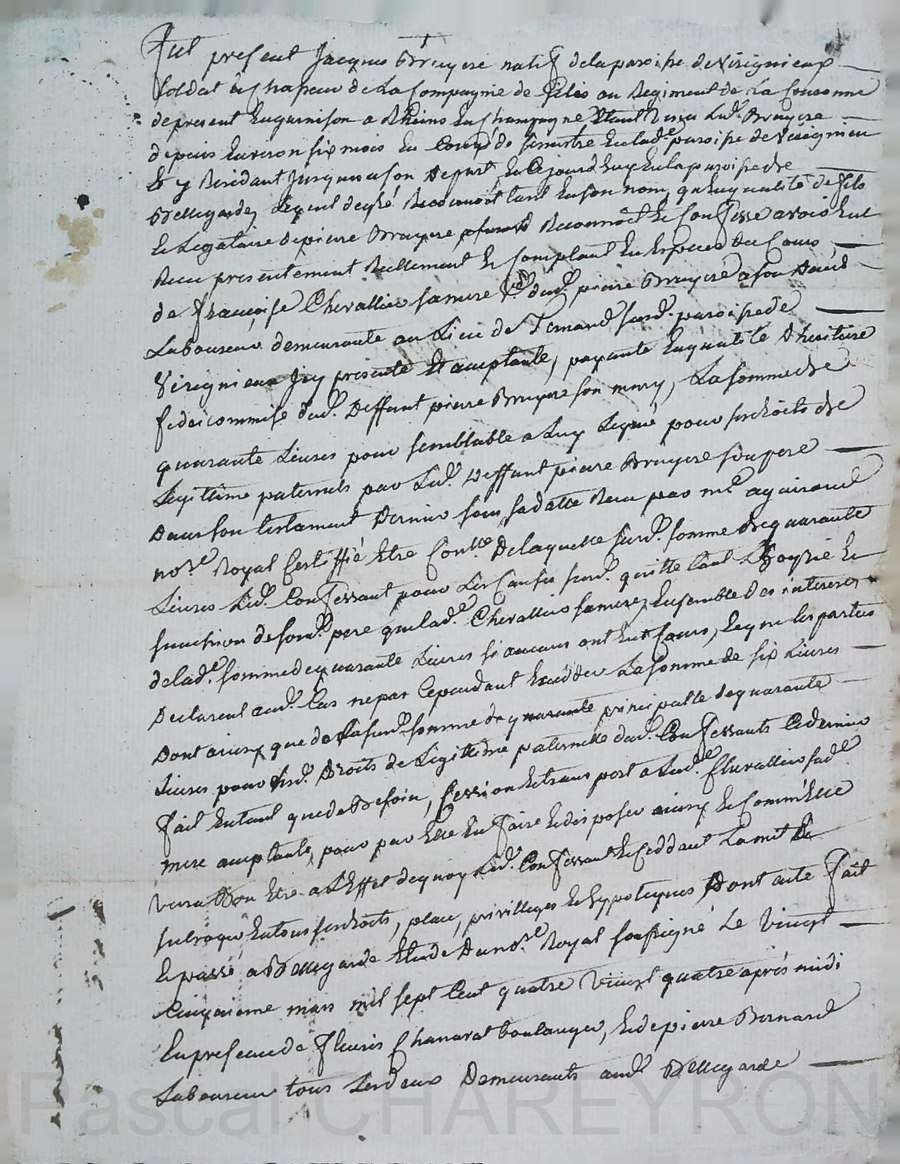 Fut present Jacques Bruyere natif de la paroisse de Virignieux
soldat de la Compagnie de au Regiment de La Couronne
de present en garnison a Rheins en champagne Etant venu led. Bruyere
depuis Environ six mois en Congé de semestre en lad.e paroisse de Virignieu
Et y Residant jusques a son depart, En Ce jourd'huy en la paroisse de
Bellegarde, Lequel de gré Reconnoit tant en son nom qu'en qualité de fils
Et Legataire de pierre Bruyere Reconnoit Et Confesse avoir Eut
Reçu presentement Reellement Et Comptant En Especes du Cours
de françoise Chevallier sa mere Ve dud. pierre Bruyere a son Décès
Laboureur demeurante au Lieu de surd. paroisse de
Virignieux Icy presente Et acceptante, payante En qualité d'heritiere
fideicommise dud. Deffunt pierre Bruyere son mary, La somme de
quarante Livres pour semblable a Luy Legué pour ses droits de
Legitime paternels par Led. Deffunt pierre Bruyere son pere
Dans son testament Dernier sous sa datte Reçu par me
no.re Royal Certiffié Etre Conlle. De laquelle surd. somme de quarante
Livres Led. Confessant pour Les Causes surd. quitte tant L'hoyrie Et
succession de sond. pere que lad.e Chevallier sa mere, Ensemble des interets
de lad.e somme de quarante Livres si aucuns ont Eut Cours, Lesquels les parties
Declarent aud. Cas ne pas Cependant Exceder La somme de six Livres
Dont ainsy que de la surd. somme de quarante principalle de quarante
Livres pour surd. Droits de Legittime paternelle dud. Confessant, Ce dernier
fait En tant que de Besoin, Cession Et transport a Lad.e Chevallier sad.e
mere acceptante, pour par Elle En faire Et disposer ainsy Et Comm'Elle
verra bon Etre a L'Effet de quoy Led. Confessant Et Ceddant La met Et
subroge En tous ses droits, place, privilleges Et hypoteques Dont acte fait
Et passé a Bellegarde Etude du no.re Royal soussigné Le Vingt
Cinquieme mars mil sept Cent quatre Vingt quatre après midi
En presence de fleuris Chanavat boulanger, Et de pierre Bernard
Laboureur tous Les deux Demeurants aud. Bellegarde
Pascal CHAREYRON